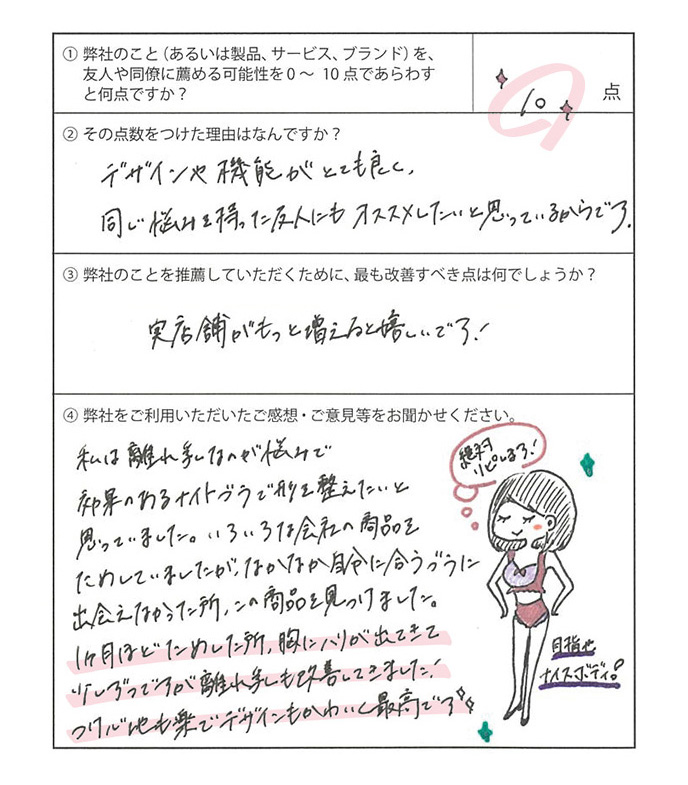 ① 弊社のこと(あるいは製品、サービス、ブランド)を、
友人や同僚に薦める可能性を0～ 10点であらわす
と何点ですか？
10 点
② その点数をつけた理由はなんですか？
デザインや機能がとても良く、
同じ悩みを持った友人にもオススメしたいと思っているからです.
③ 弊社のことを推薦していただくために、最も改善すべき点は何でしょうか？
実店舗がもっと増えると嬉しいです!
④ 弊社をご利用いただいたご感想・ご意見等をお聞かせください。
私は離れ乳なのが悩みで
効果のあるナイトブラで形を整えたいと
思っていました。いろいろな会社の商品を
ためしていましたが、なかなか自分に合うブラに
出会えなかった所、この商品を見つけました。
1ヶ月ほどためした所、胸にハリが出てきて
少しずつですが離れ乳も改善してきました!
つけ心地も楽でデザインもかわいく最高です
絶対
リピする!
目指せ
ナイスボディ!